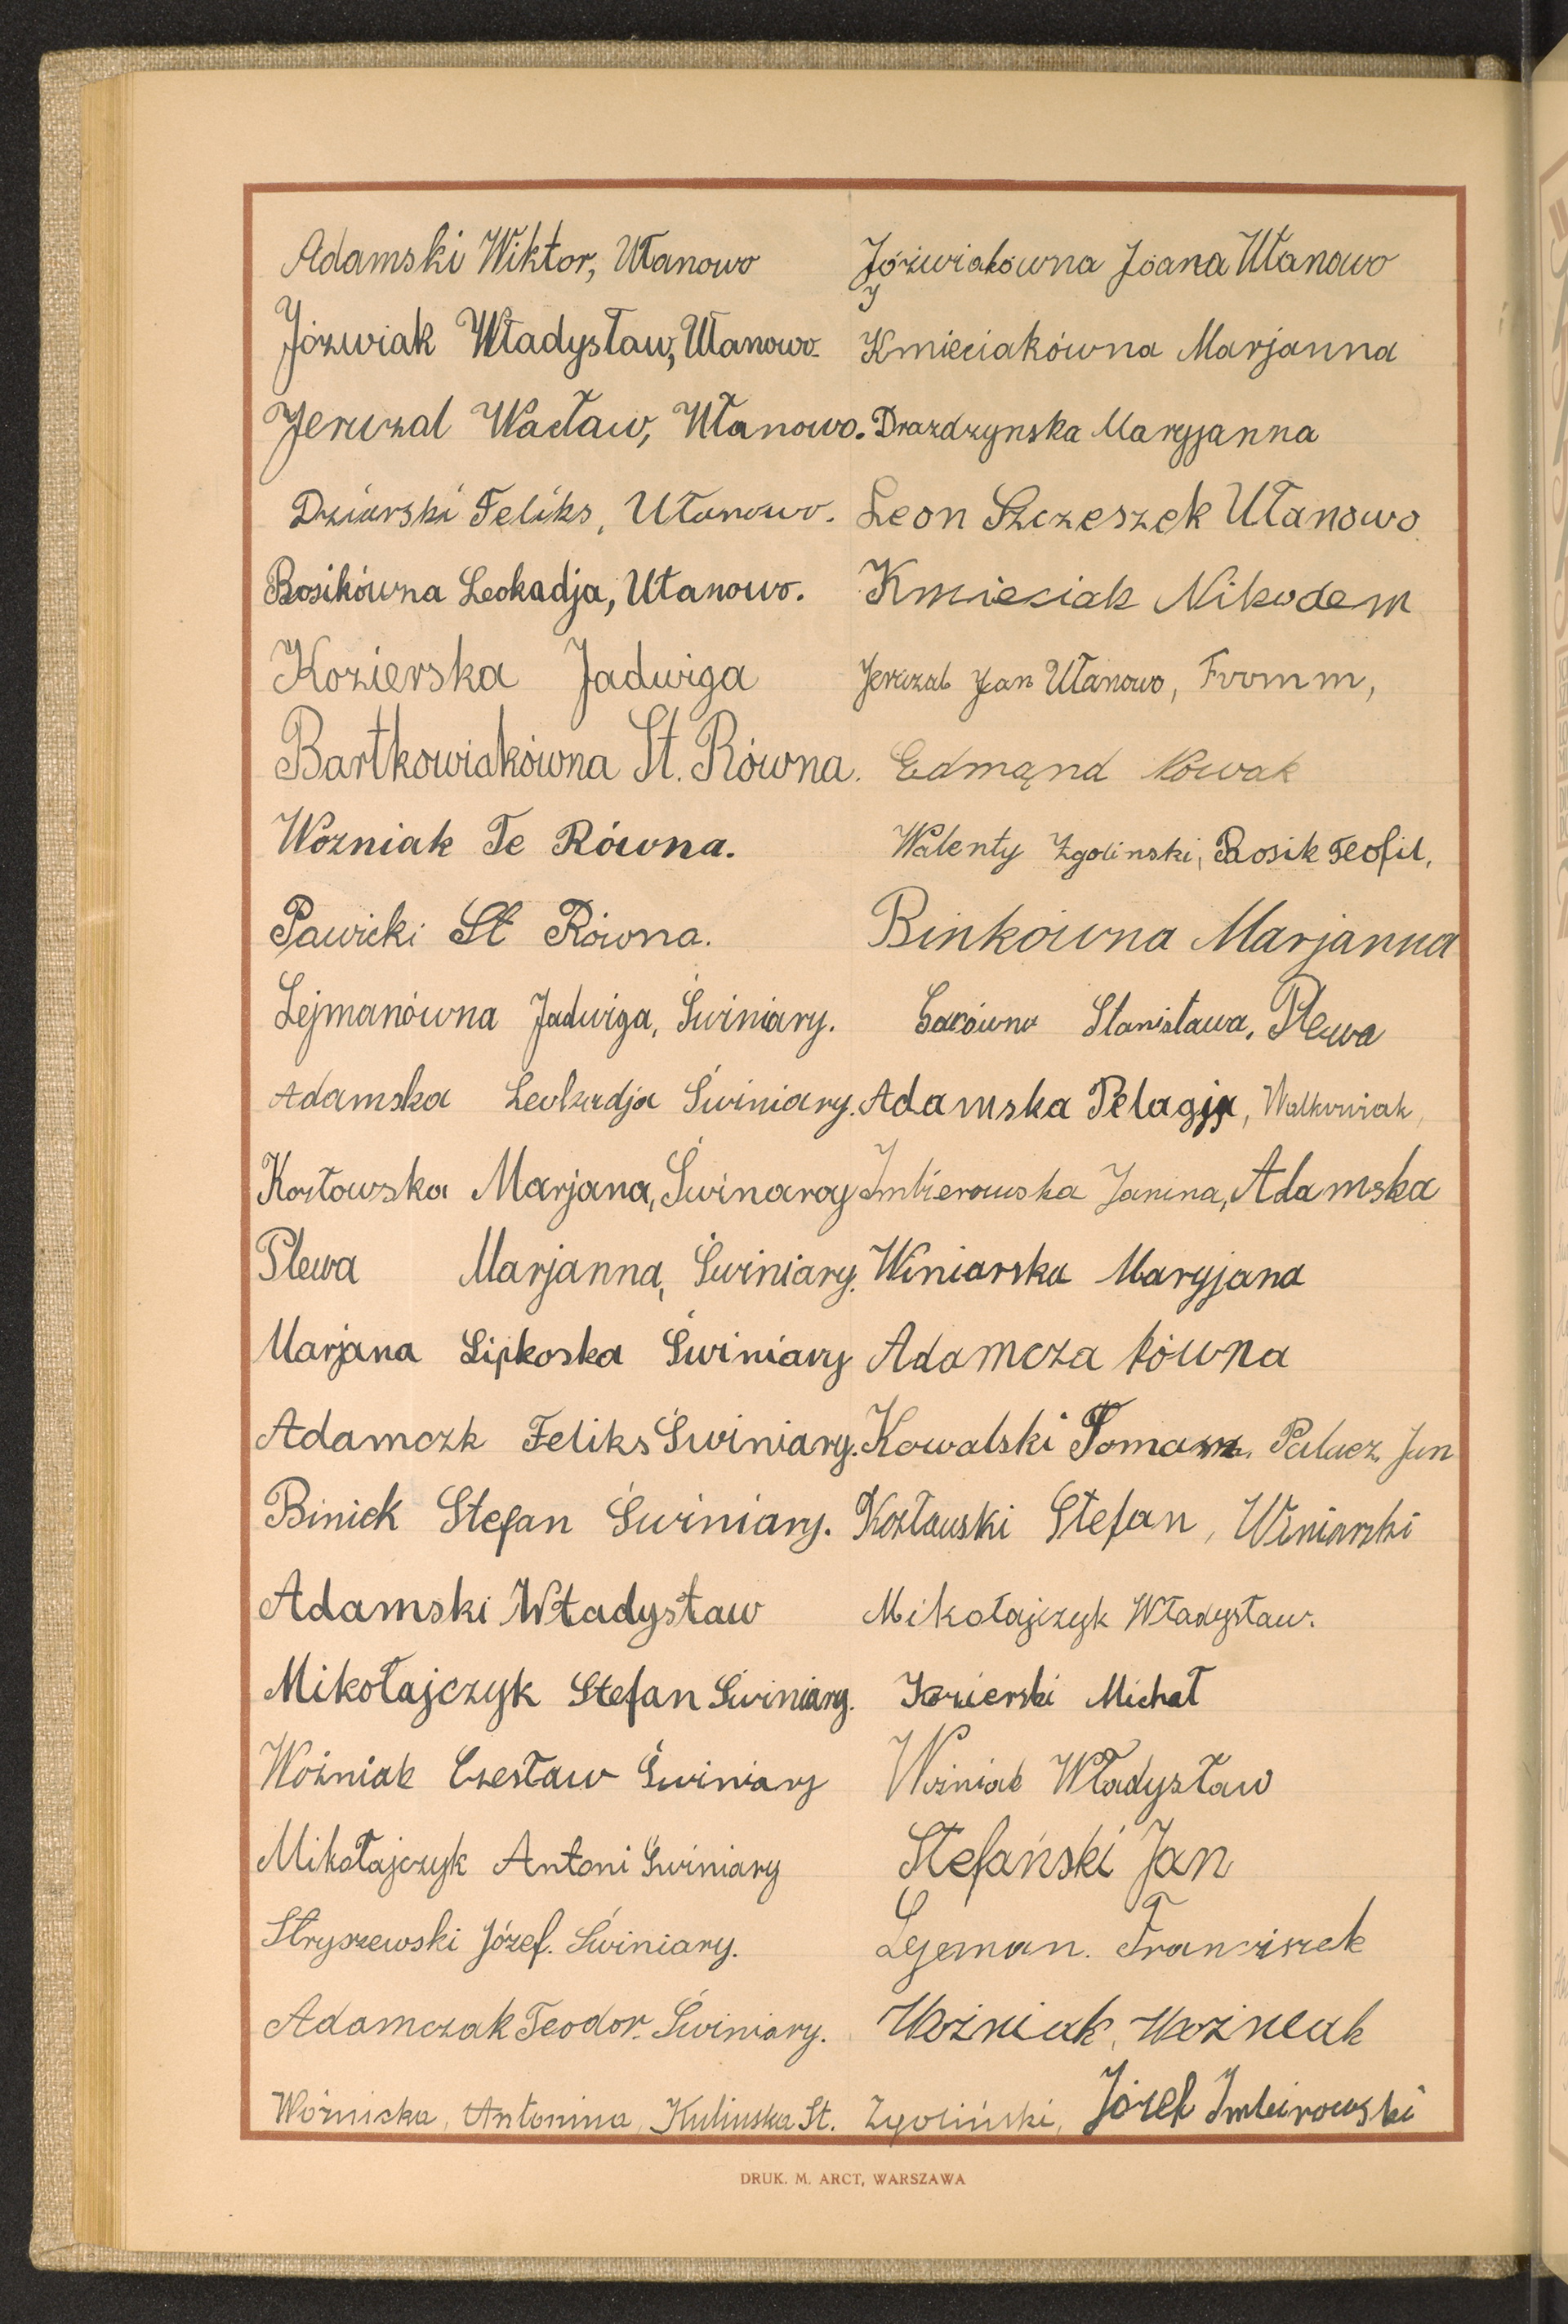 Adamski Wiktor, Utanowo
Józwiak Władysław, Utanowo.
Jeruzal Wacław, Utanowo.
Dziarski Feliks, Utanowo.
Bosikówna Leokadja, Utanowo.
Kozierska Jadwiga
Bartkowiakówna St. Równa.
Wozniak Te Równa.
Pawicki St Równa.
Lejmanówna Jadwiga, Świniary.
Adamska Leokadja Świniary.
Kozłowska Marjana, Świnaroy
Plewa Marjanna, Świniary.
Marjana Lipkoska Świniary
Adamczk Feliks Świniary.
Biniek Stefan Świniary.
Adamski Władysław
Mikołajczyk Stefan Świniary.
Woźniak Czesław Świniary
Mikołajczyk Antoni Świniary
Stryszewski Józef. Świniary.
Adamczak Teodor. Świniary.
Wóznicka, Antonina, Kuliuska St.
Józwiakówna Joana Utanowo
Kmieciakówna Marjanna
Drazdzynska Maryjanna
Leon Szczeszek Utanowo
Kmieciak Nikodem
Jeruzal Jan Utanowo, Fromm,
Edmąnd Nowak
Walenty Zgolinski, Bosik Teofil,
Binkówna Marjanna
Stanisława, Plewa
Adamska Pelagja, Walkowiak,
Imbierowska Janina, Adamska
Winiarska Maryjana
Adamcza kówna
Kowalski Tomasz, Palacz, Jan
Kozławski Stefan, Winiarski
Mikołajczyk Władysław.
Kozierski Michał
Woźniak Władysław
Stefański Jan
Lejeman. Franciszek
Woźniak, Woźniak
Zgoliński, Józef Imbirowski
DRUK. M. ARCT, WARSZAWA